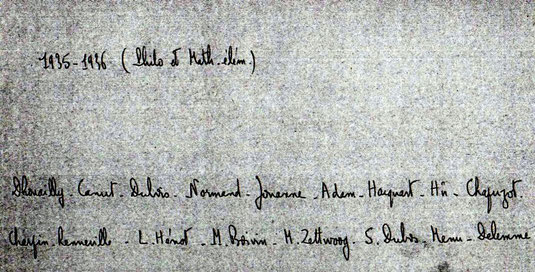 1935-1936 (Philo et Math-élém.)
Dhouailly - Canut - Dubois - Normand - Jouanne - Adam - Hacquart - Hû - Chapuzot.
Charpin - Renneville - L. Hénot - M. Boivin - H. Zettwoog - S. Dubois - Menu - Delemme